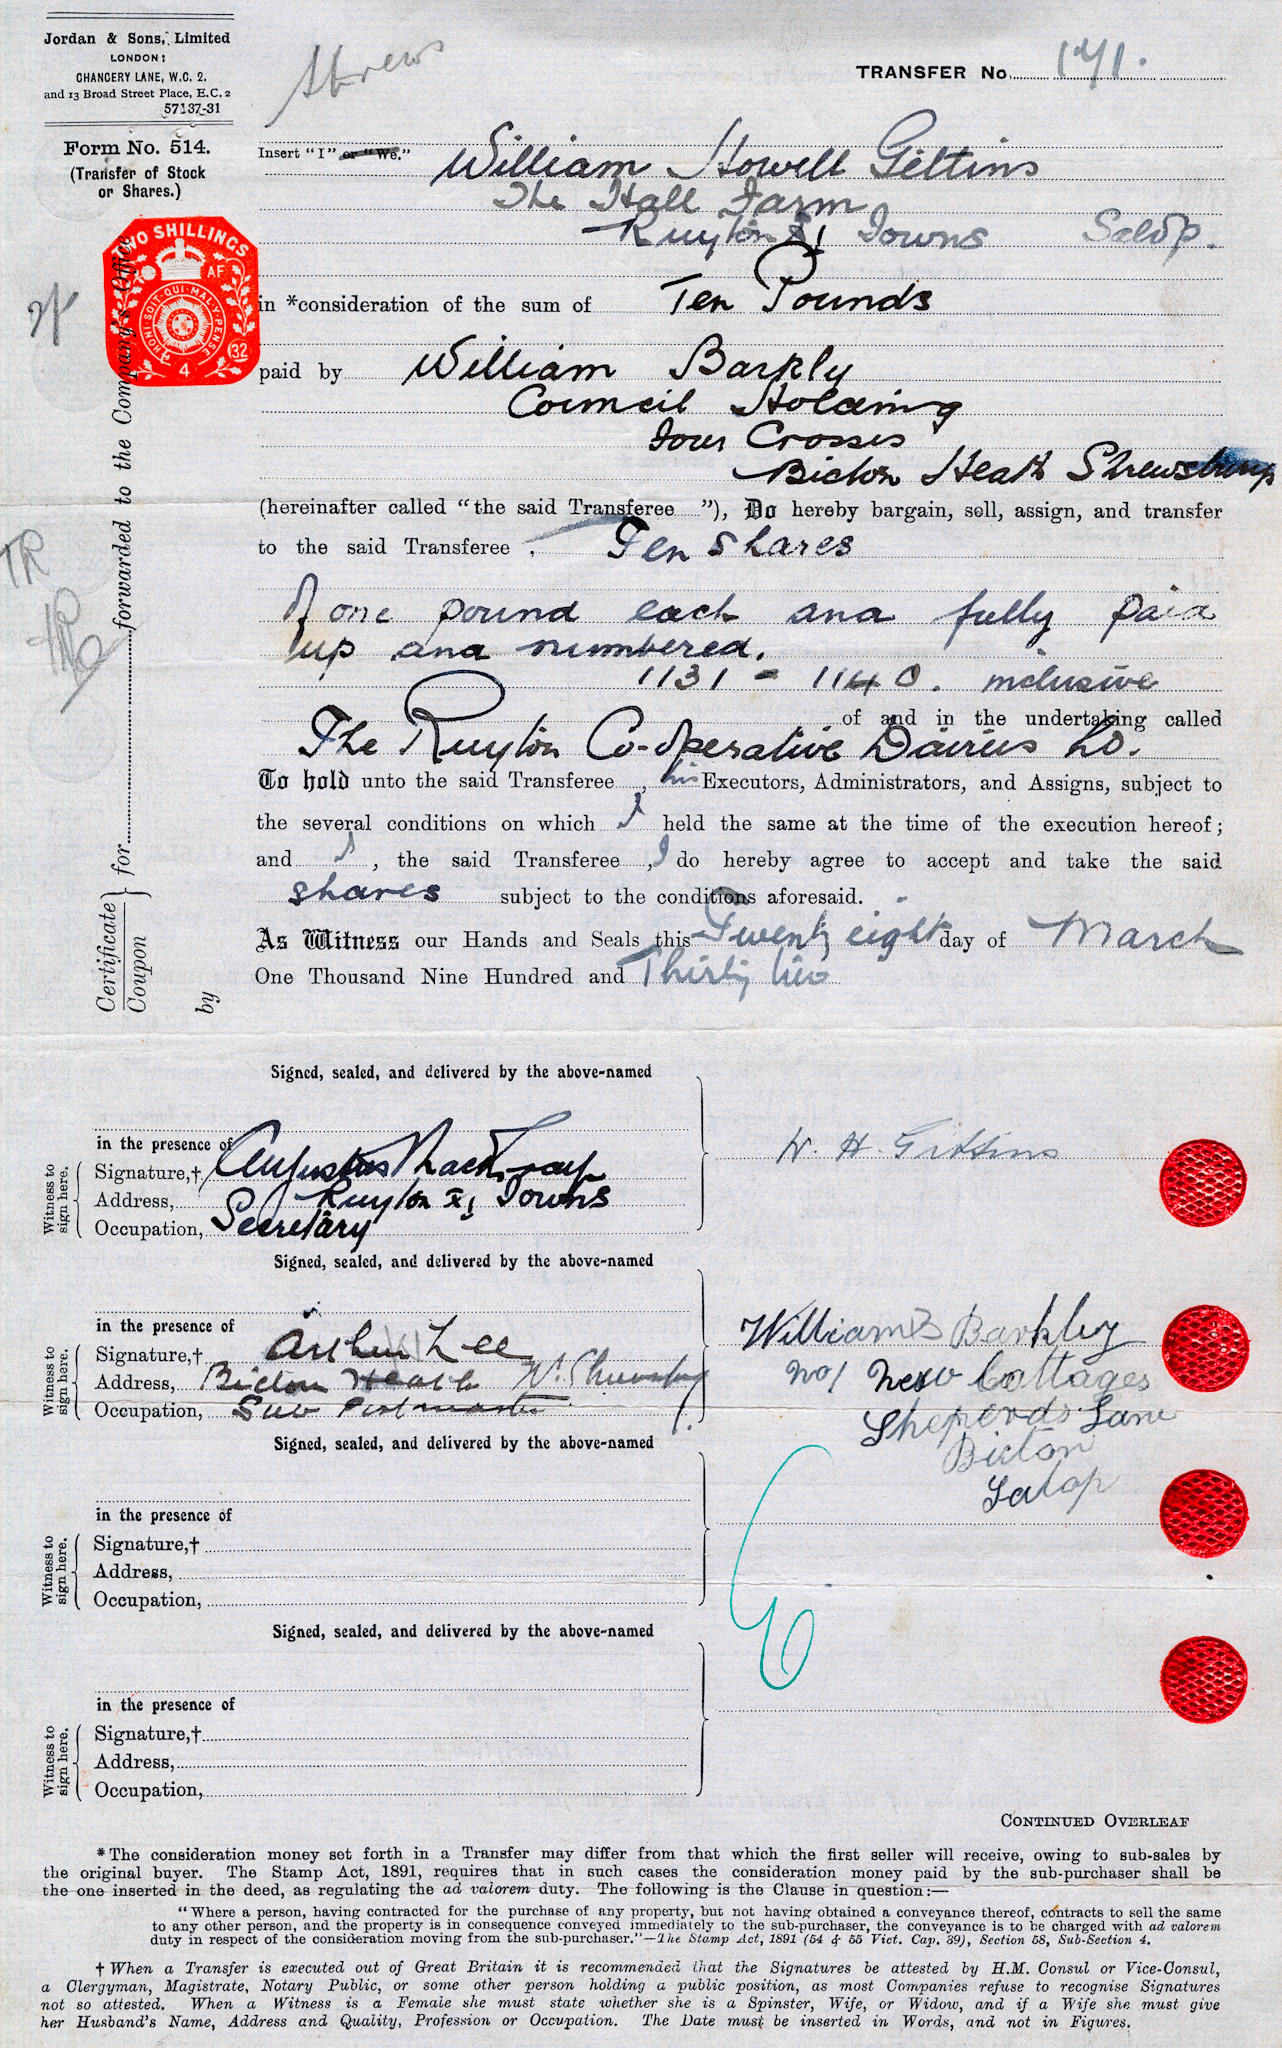 Jordan & Sons, Limited
LONDON:
CHANCERY LANE, W.C. 2.
and 13 Broad Street Place, E.C. 2
57137-31
Form No. 514.
(Transfer of Stock
or Shares.)
Shrews
TRANSFER No. 171.
Insert "I" or "We."
William Howell Gittins
The Hall Farm
Ruyton XI Towns Salop.
TWO SHILLINGS
AF
HONI·SOIT·QUI·MAL·Y·PENSE
32
4
2/-
in *consideration of the sum of Ten Pounds
paid by William Barkly
Council Holding
Four Crosses
Bicton Heath Shrewsbury
(hereinafter called "the said Transferee "), Do hereby bargain, sell, assign, and transfer
to the said Transferee , Ten Shares
of one pound each and fully paid
up and numbered.
1131 - 1140. inclusive
of and in the undertaking called
The Ruyton Co-operative Dairies Ld.
To hold unto the said Transferee , his Executors, Administrators, and Assigns, subject to
the several conditions on which I held the same at the time of the execution hereof;
and I , the said Transferee , I do hereby agree to accept and take the said
shares subject to the conditions aforesaid.
As Witness our Hands and Seals this Twenty eight day of March
One Thousand Nine Hundred and Thirty two
Certificate
Coupon
for forwarded to the Company's Office
by
TR
Signed, sealed, and delivered by the above-named
in the presence of
Witness to
sign here.
Signature,† Augustus
Address, Ruyton XI Towns
Occupation, Secretary
W. H. Gittins
Signed, sealed, and delivered by the above-named
in the presence of
Witness to
sign here.
Signature,† Arthur Lee
Address, Bicton Heath Nr. Shrewsbury
Occupation, Sub Postmaster
William B Barkley
No 1 New Cottages
Sheperds Lane
Bicton
Salop
Signed, sealed, and delivered by the above-named
in the presence of
Witness to
sign here.
Signature,†
Address,
Occupation,
Signed, sealed, and delivered by the above-named
in the presence of
Witness to
sign here.
Signature,†
Address,
Occupation,
CONTINUED OVERLEAF
* The consideration money set forth in a Transfer may differ from that which the first seller will receive, owing to sub-sales by
the original buyer. The Stamp Act, 1891, requires that in such cases the consideration money paid by the sub-purchaser shall be
the one inserted in the deed, as regulating the ad valorem duty. The following is the Clause in question:—
"Where a person, having contracted for the purchase of any property, but not having obtained a conveyance thereof, contracts to sell the same
to any other person, and the property is in consequence conveyed immediately to the sub-purchaser, the conveyance is to be charged with ad valorem
duty in respect of the consideration moving from the sub-purchaser."—The Stamp Act, 1891 (54 & 55 Vict. Cap. 39), Section 58, Sub-Section 4.
† When a Transfer is executed out of Great Britain it is recommended that the Signatures be attested by H.M. Consul or Vice-Consul,
a Clergyman, Magistrate, Notary Public, or some other person holding a public position, as most Companies refuse to recognise Signatures
not so attested. When a Witness is a Female she must state whether she is a Spinster, Wife, or Widow, and if a Wife she must give
her Husband's Name, Address and Quality, Profession or Occupation. The Date must be inserted in Words, and not in Figures.